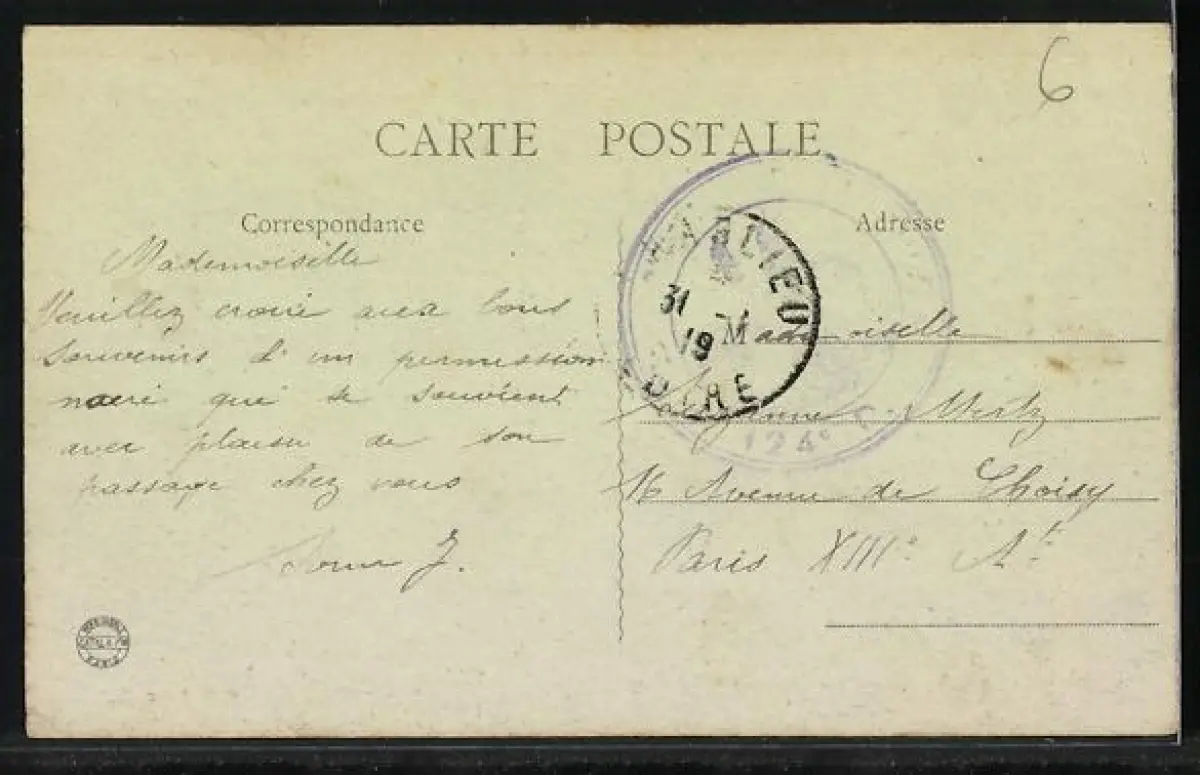 6
CARTE POSTALE
Correspondance
Mademoiselle
Veuillez croire aux bons
souvenirs d'un permission
naire qui se souvient
avec plaisir de son
passage chez vous
J.
Adresse
LIEU
31
19
124e
Mademoiselle
Mertz
16 Avenue de Choisy
Paris XIIIe At